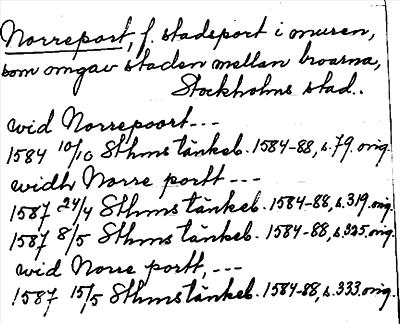 Norreport, f. stadsport i muren,
som omgav staden mellan broarna,
Stockholms stad.
wid Norrepoort---
1584 10/10 Sthms tänkeb. 1584-88, s.79. orig.
widh Norre portt ---
1587 24/4 Sthms tänkeb. 1584-88, s.319. orig.
1587 8/5 Sthms tänkeb. 1584-88, s.325. orig.
wid Norre portt, ---
1587 15/5 Sthms tänkeb. 1584-88, s.333. orig.